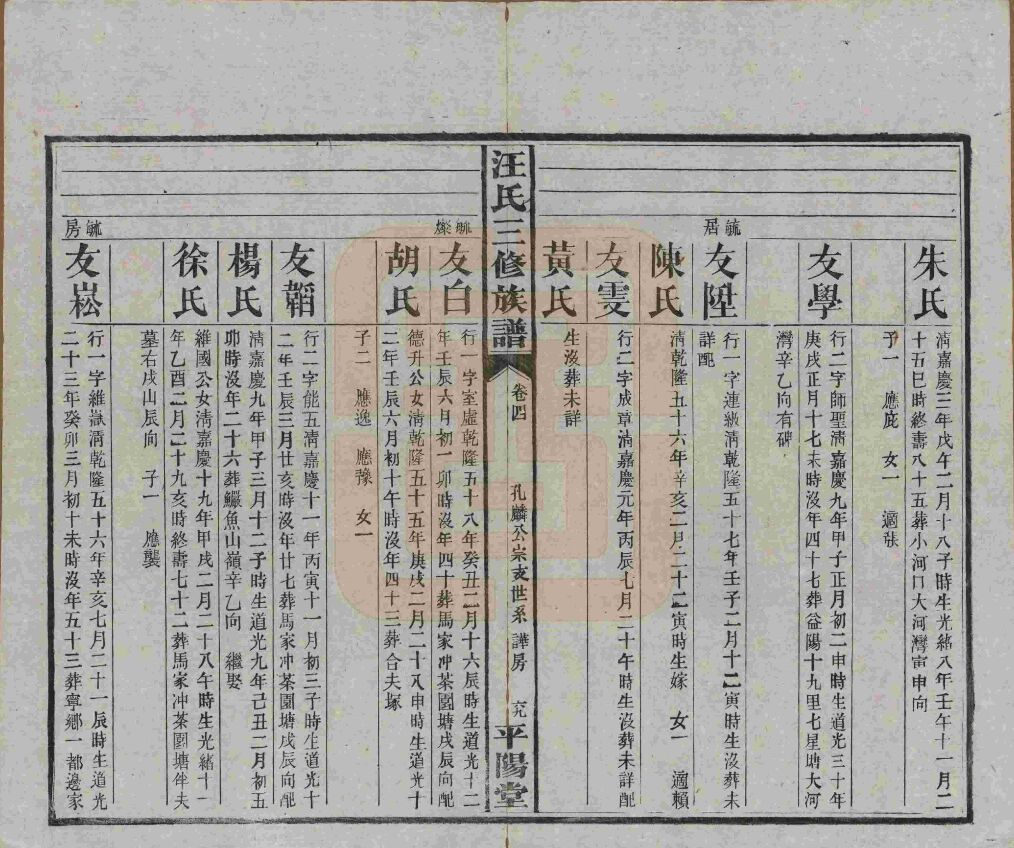 朱氏
清嘉慶三年戊午二月十八子時生光緒八年壬午十一月二
十五巳時終壽八十五葬小河口大河灣寅申向
子一　應庇　女一　適張
友學
行二字師聖清嘉慶九年甲子正月初二申時生道光三十年
庚戌正月十七未時沒年四十七葬益陽十九里七星塘大河
灣辛乙向有碑
毓居
友陞
行一字連級清乾隆五十七年壬子二月十二寅時生沒葬未
詳配
陳氏
清乾隆五十六年辛亥二月二十二寅時生嫁　女一　適賴
友雯
行二字成章清嘉慶元年丙辰七月二十午時生沒葬未詳配
黃氏
生沒葬未詳
汪氏三修族譜
卷四
孔麟公宗支世系　譁房
六九
平陽堂
毓燦
友白
行一字室虛乾隆五十八年癸丑二月十六辰時生道光十二
年壬辰六月初一卯時沒年四十葬馬家冲茶園塘戌辰向配
胡氏
德升公女清乾隆五十五年庚戌二月二十八申時生道光十
二年壬辰六月初十午時沒年四十三葬合夫塚
子二　應逸　應豫　女一
友韜
行二字能五清嘉慶十一年丙寅十一月初三子時生道光十
二年壬辰三月廿亥時沒年廿七葬馬家冲茶園塘戌辰向配
楊氏
清嘉慶九年甲子三月十二子時生道光九年己丑二月初五
卯時沒年二十六葬鱖魚山嶺辛乙向　繼娶
徐氏
維國公女清嘉慶十九年甲戌二月二十八午時生光緒十一
年乙酉二月二十九亥時終壽七十二葬馬家冲茶園塘伴夫
墓右戌山辰向　子一　應襲
毓房
友崧
行一字維嶽清乾隆五十六年辛亥七月二十一辰時生道光
二十三年癸卯三月初十未時沒年五十三葬寧鄉一都邊家